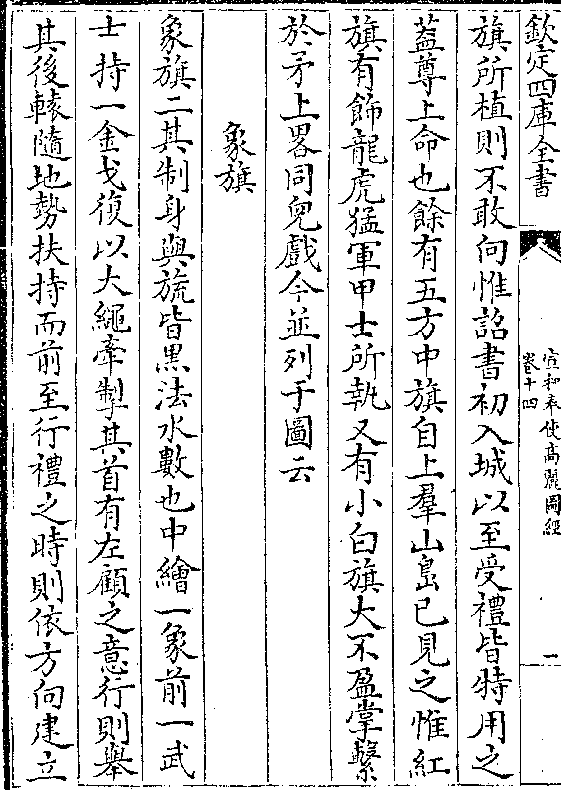 欽定四庫全書
宣和奉使高麗圖經
卷十四
一
旗所植則不敢向惟詔書初入城以至受禮皆特用之
葢尊上命也餘有五方中旗自上羣山島已見之惟紅
旗有飾龍虎猛軍甲士所執又有小白旗大不盈掌繫
於矛上畧同兒戲今並列于圖云
象旗
象旗二其制身與旒皆黒法水數也中繪一象前一武
士持一金戈復以大繩牽掣其首有左顧之意行則舉
其後轅隨地勢扶持而前至行禮之時則依方向建立